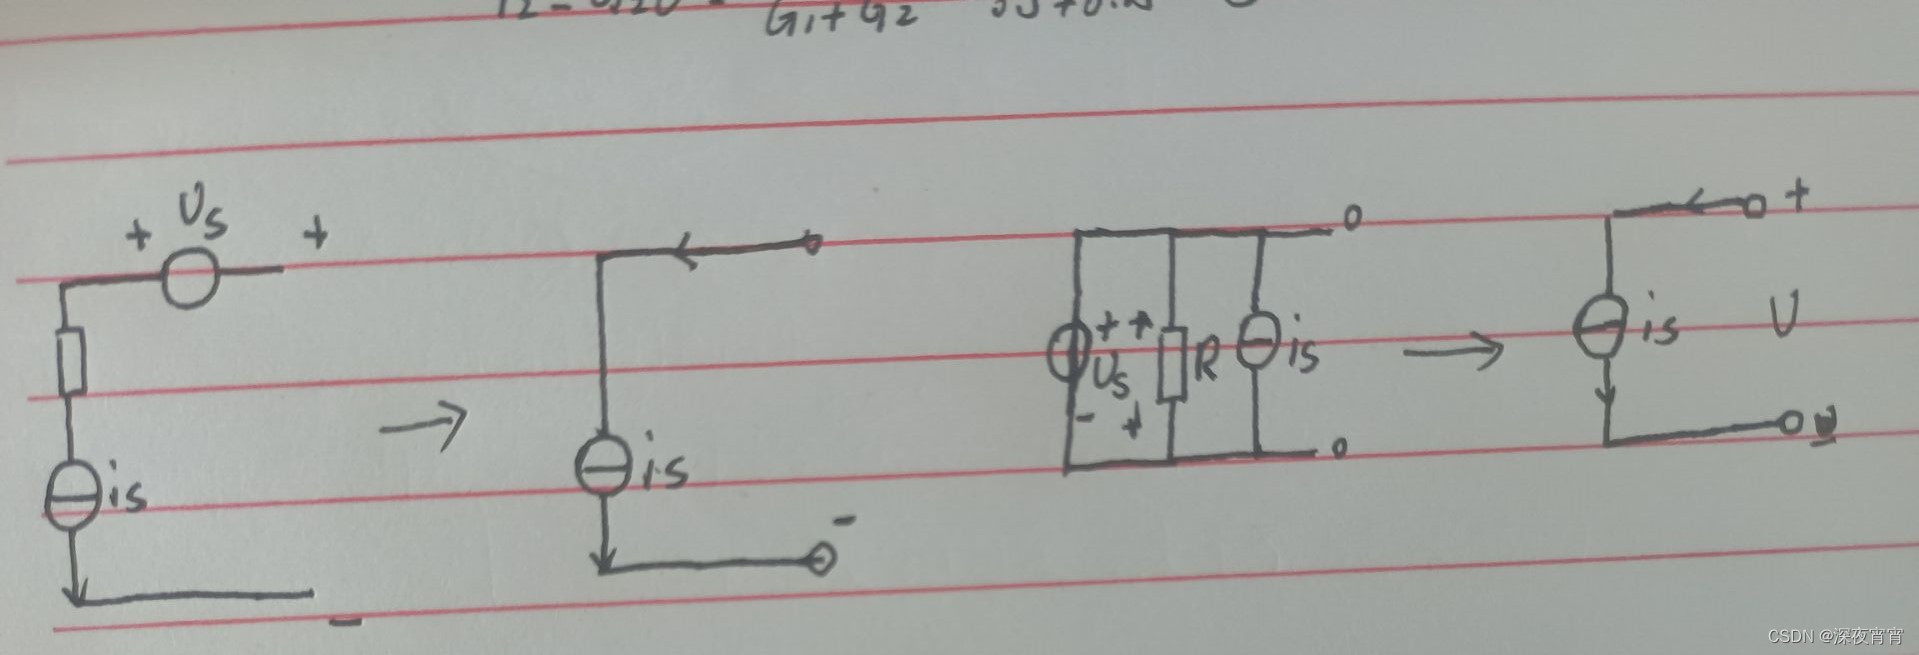 G1+G2
+ Us +
is
-
is
-
+ +
Us R is
- +
+
is U
-
CSDN @深夜宵宵